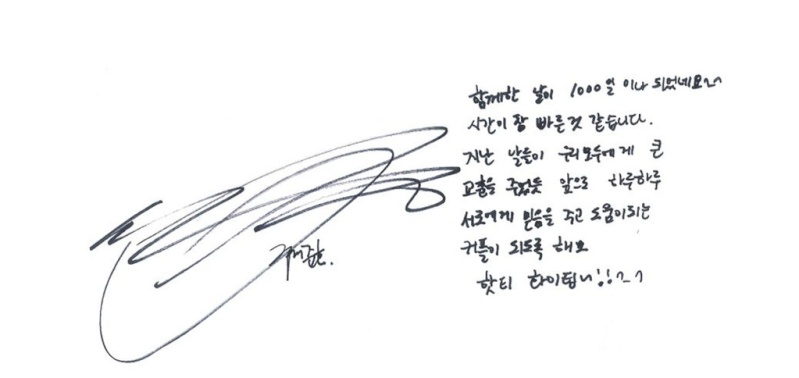 함께한 날이 1000일 이나 되었네요^^
시간이 참 빠른것 같습니다.
지난 날들이 우리모두에게 큰
교훈을 주었듯 앞으로 하루하루
서로에게 믿음을 주고 도움이되는
커플이 되도록 해요
핫티 화이팅!!^^